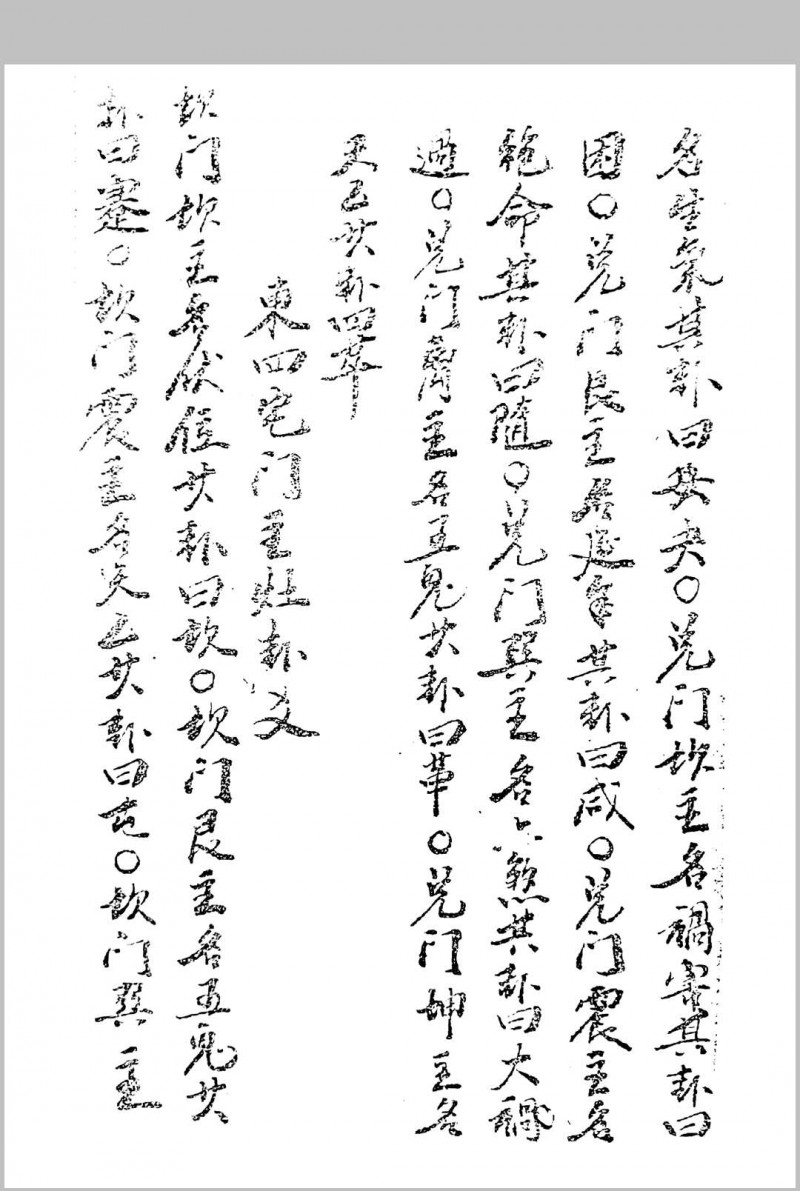 名生氣其卦曰夬○兑门坎主名禍害其卦曰
困○兑门艮主名延年其卦曰咸○兑门震主名
绝命其卦曰隨○兑门巽主名六煞其卦曰大禍
過○兑门离主名五鬼其卦曰革○兑门坤主名
天乙其卦曰萃
東四宅门主灶卦爻
坎门坎主名伏位其卦曰坎○坎门艮主名五鬼其
卦曰蹇○坎门震主名天乙其卦曰屯○坎门巽主